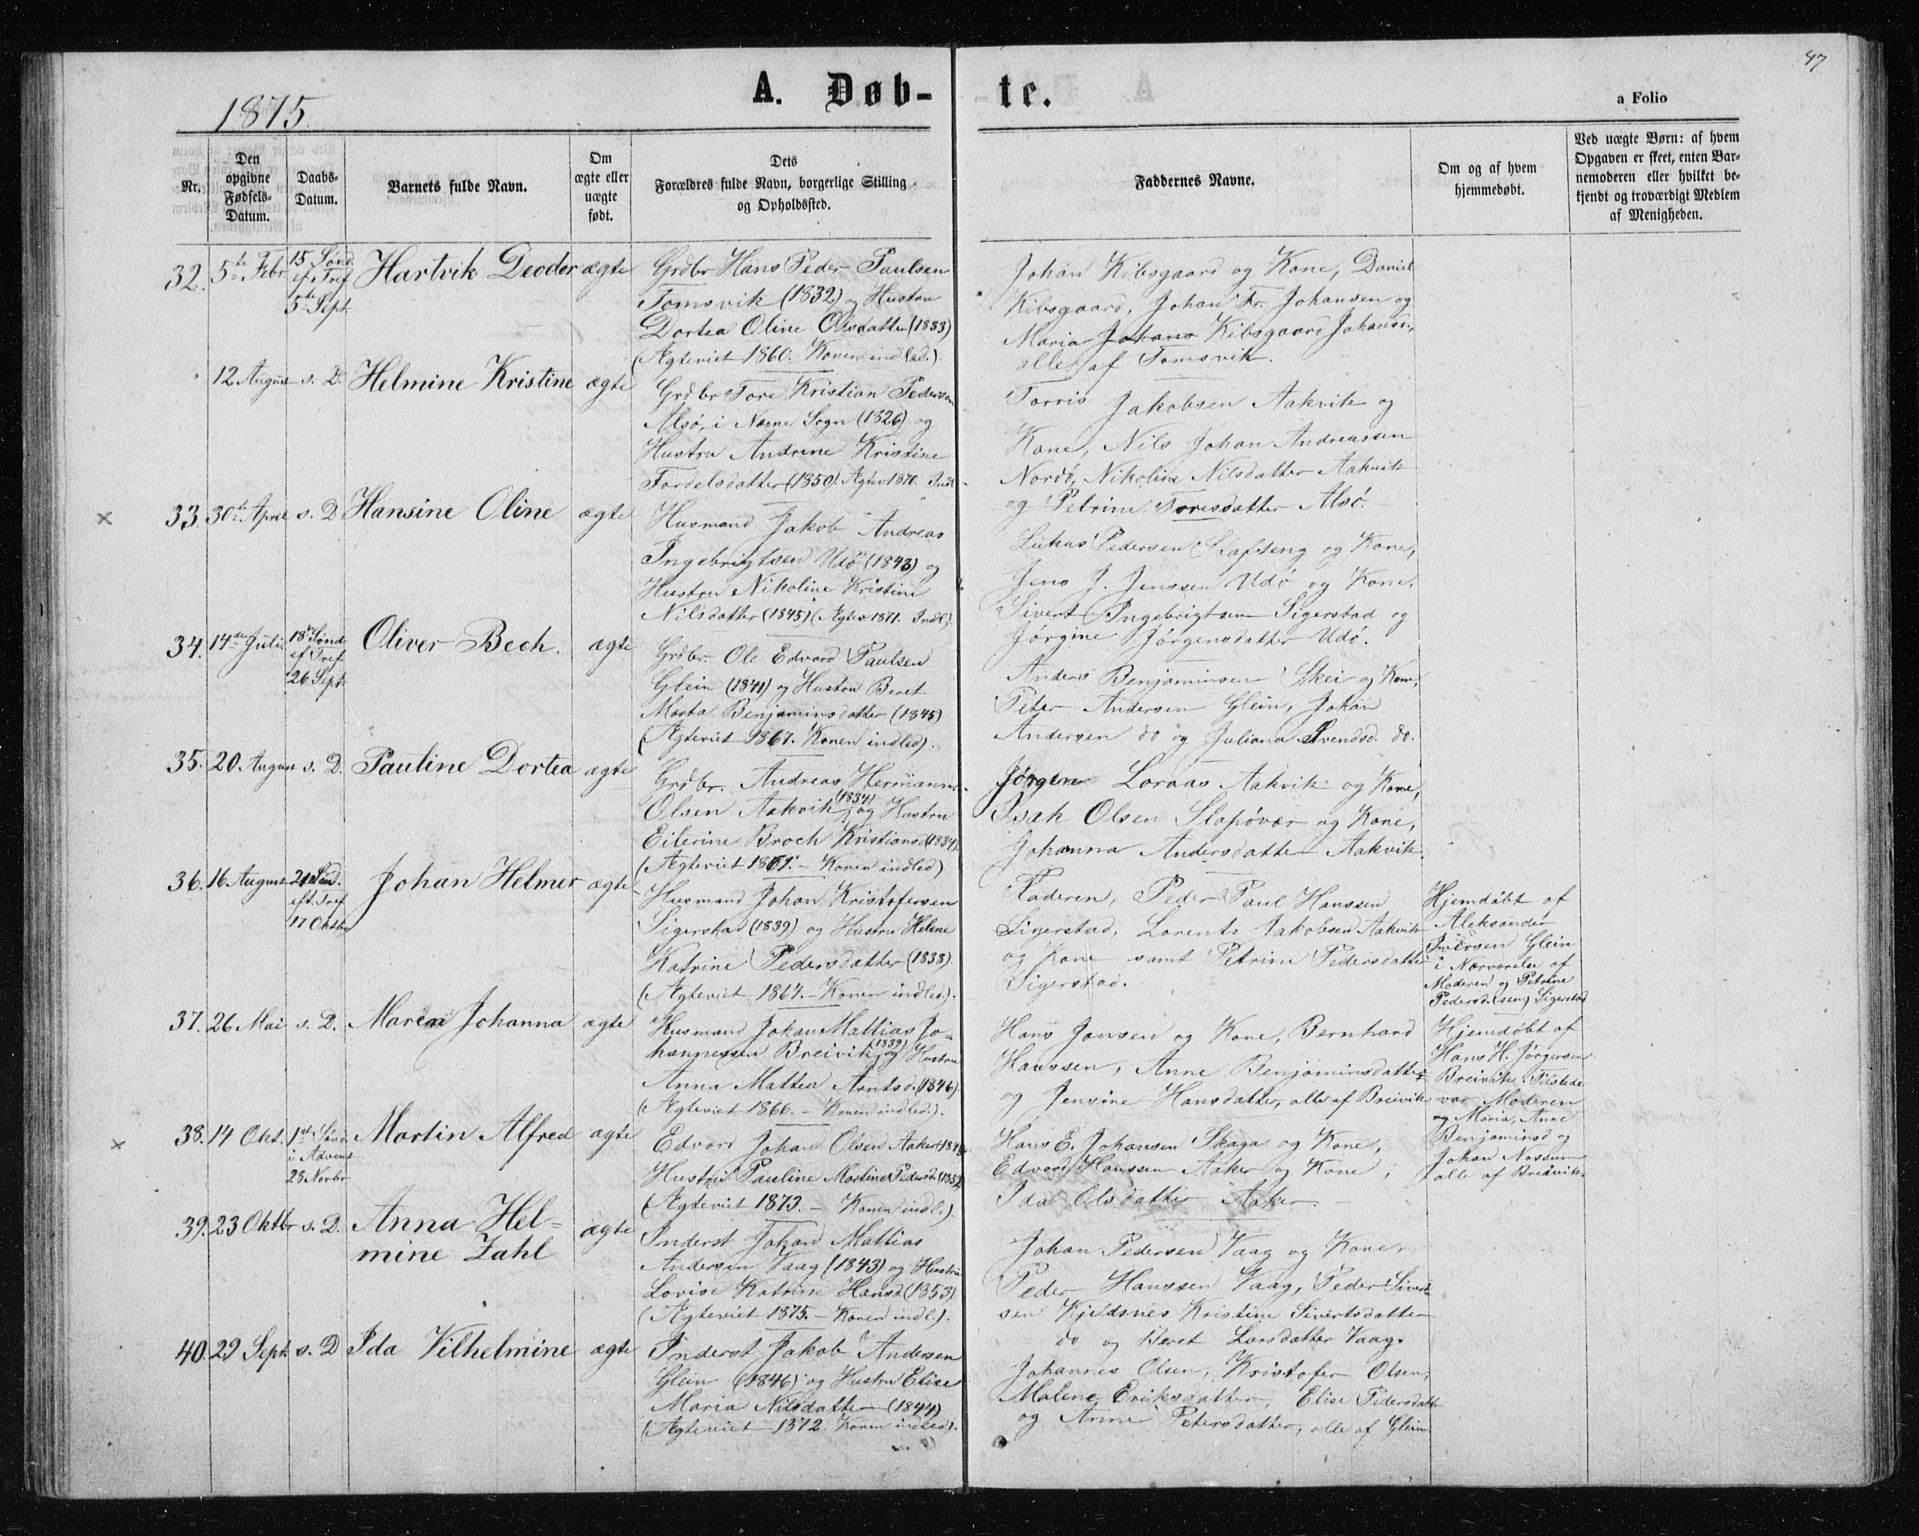 47
A. Døb-
te.
a Folio
1875.
Nr.
Den opgivne Fødsels-Datum.
Daabs-Datum.
Barnets fulde Navn.
Om ægte eller uægte født.
Dets Forældres fulde Navn, borgerlige Stilling og Opholdssted.
Faddernes Navne.
Om og af hvem hjemmedøbt.
Ved uægte Børn: af hvem Opgaven er skeet, enten Barnemoderen eller hvilket bekjendt og troværdigt Medlem af Menigheden.
32. 5te Febr. 15 Sønd. ef Tref 5te Sept. Hartvik Deodor ægte
Grdbr Hans Peder Paulsen
Tomsvik (1832) og Hustru
Dortea Oline Olsdatter (1833)
(Ægteviet 1860. Konen indled.).
Johan Kibsgaard og Kone, Daniel
Kibsgaard, Johan Fr. Johansen og
Maria Johans Kibsgaard Johansen,
alle af Tomsvik.
12 August s. D. Helmine Kristine ægte
Grdbr Tore Kristian Pedersen
Alsø, i Næsne Sogn (1826) og
Hustru Andrine Kristine
Tordelsdatter (1850). Ægtev 1870. Indl.
Torris Jakobsen Aakvik og
Kone, Nils Johan Andreassen
Nordø, Nikoline Nilsdatter Aakvik
og Petrine Toresdatter Alsø.
33. 30te April s. D Hansine Oline ægte
Husmand Jakob Andreas
Ingebrigtsen Udø (1843) og
Hustru Nikoline Kristine
Nilsdatter (1845) (Ægtev 1871. Indl).
Lukas Pedersen Slafseng og Kone,
Jens J. Jenssen Udø og Kone,
Sivert Ingebrigtsen Sigerstad og
Jørgine Jørgensdatter Udø.
34. 14de Juli 18de Sønd ef Tref 26 Sept. Oliver Bech. ægte
Grdbr. Ole Edvard Paulsen
Glein (1841) og Hustru Beret
Marta Benjaminsdatter (1845)
(Ægteviet 1867. Konen indled).
Anders Benjaminsen Skei og Kone,
Peter Andersen Glein, Johan
Andersen do og Juliana Svendsd. do.
35. 20 August s. D. Pauline Dortea ægte
Grdbr. Andreas Hermann
Olsen Aakvik (1834) og Hustru
Eilerine Broch Kristiansd (1834).
(Ægteviet 1861. – Konen indled)
Jørgen Loraas Aakvik og Kone,
Isak Olsen Slapøvær og Kone,
Johanna Andersdatter Aakvik.
36. 16 August 21de Sønd. eft. Tref 17 Oktbr Johan Helmer ægte
Husmand Johan Kristofersen
Sigerstad (1839) og Hustru Helene
Katrine Pedersdatter (1838)
(Ægteviet 1864. – Konen indled).
Faderen, Peder Paul Hanssen
Sigerstad, Lorents Jakobsen Aakvik
og Kone samt Petrine Pedersdatter
Sigerstad.
Hjemdøbt af
Aleksander
Iversen Glein
i Nærværelse af
Moderen og Petrine
Pedersdatter, Sigerstad
37. 26 Mai s. D. Maren Johanna ægte
Husmand Johan Mattias Jo-
hannessen Breivik (1839) og Hustru
Anna Mattea Arntsd. (1846).
(Ægteviet 1866. – Konen indled.).
Hans Jansen og Kone, Bernhard
Hanssen, Anne Benjaminsdatter
og Jensine Hansdatter, alle af Breivik
Hjemdøbt af
Hans H. Jørgensen
Breivik. Tilstede
var Moderen
og Maria, Anne
Benjaminsd og
Johan Nossum
alle af Breivik.
38. 14 Okt. 1ste Sønd i Advent 28 Novbr Martin Alfred ægte
Edvard Johan Olsen Aaker
Hustru Pauline Martine Pedersd.
(Ægteviet 1873. – Konen indl.).
Hans E. Johansen Skaga og Kone,
Edvard Hanssen Aaker og Kone,
Ida Olsdatter Aaker.
39. 23 Oktbr s. D. Anna Hel-
mine Zahl ægte
Inderst Johan Mattias
Andersen Vaag (1843) og Hustru
Lovise Katrine Hansd (1853)
(Ægteviet 1875. – Konen indl.).
Johan Pedersen Vaag og Kone,
Peder Hanssen Vaag, Peder Sivert
sen Kjeldsnes Kristine Sivertsdatter
do og Beret Larsdatter Vaag.
40. 29 Sept. s. D Ida Vilhelmine ægte
Inderst Jakob Andersen
Glein (1846) og Hustru Elise
Maria Nilsdatter (1844)
(Ægteviet 1872 Konen indled.).
Johannes Olsen, Kristofer Olsen,
Malene Eriksdatter, Elise Pedersdatt
og Anne Petersdatter, alle af Glein.